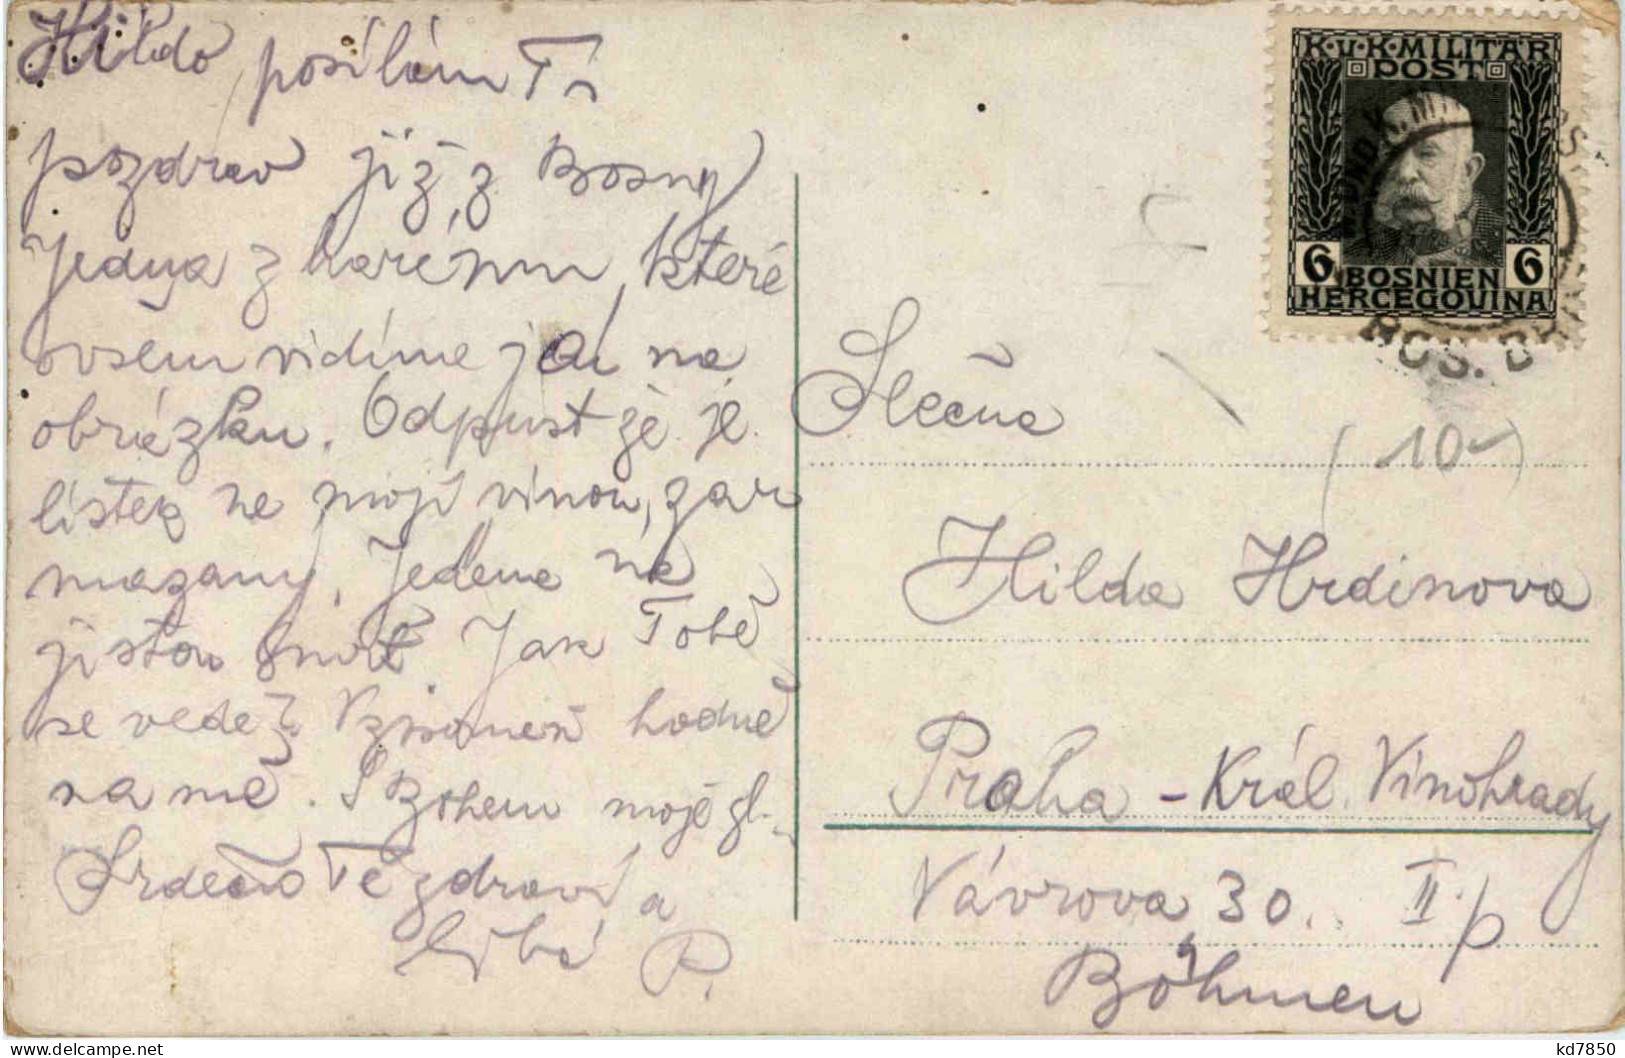 Hildo, posílám Ti
pozdrav již z Bosny
Jedna z harémmu, které
ovsem vidíme jen na
obrázku. Odpust že je
lístek ne mojí vinou, za
mazany. Jedeme na
jistou smrt. Jak Tobě
se vede? Vzpomeň hodně
na mě. S Bohem moje zl.
Srdečně Tě zdraví a
líbá P.
K.u.K. MILITÄR
POST
6 BOSNIEN 6
HERCEGOVINA
BOS. B
Slečna
(10-)
Hilda Hrdinova
Praha - Král. Vinohrady
Vávrova 30. II. p
Böhmen
kd7850